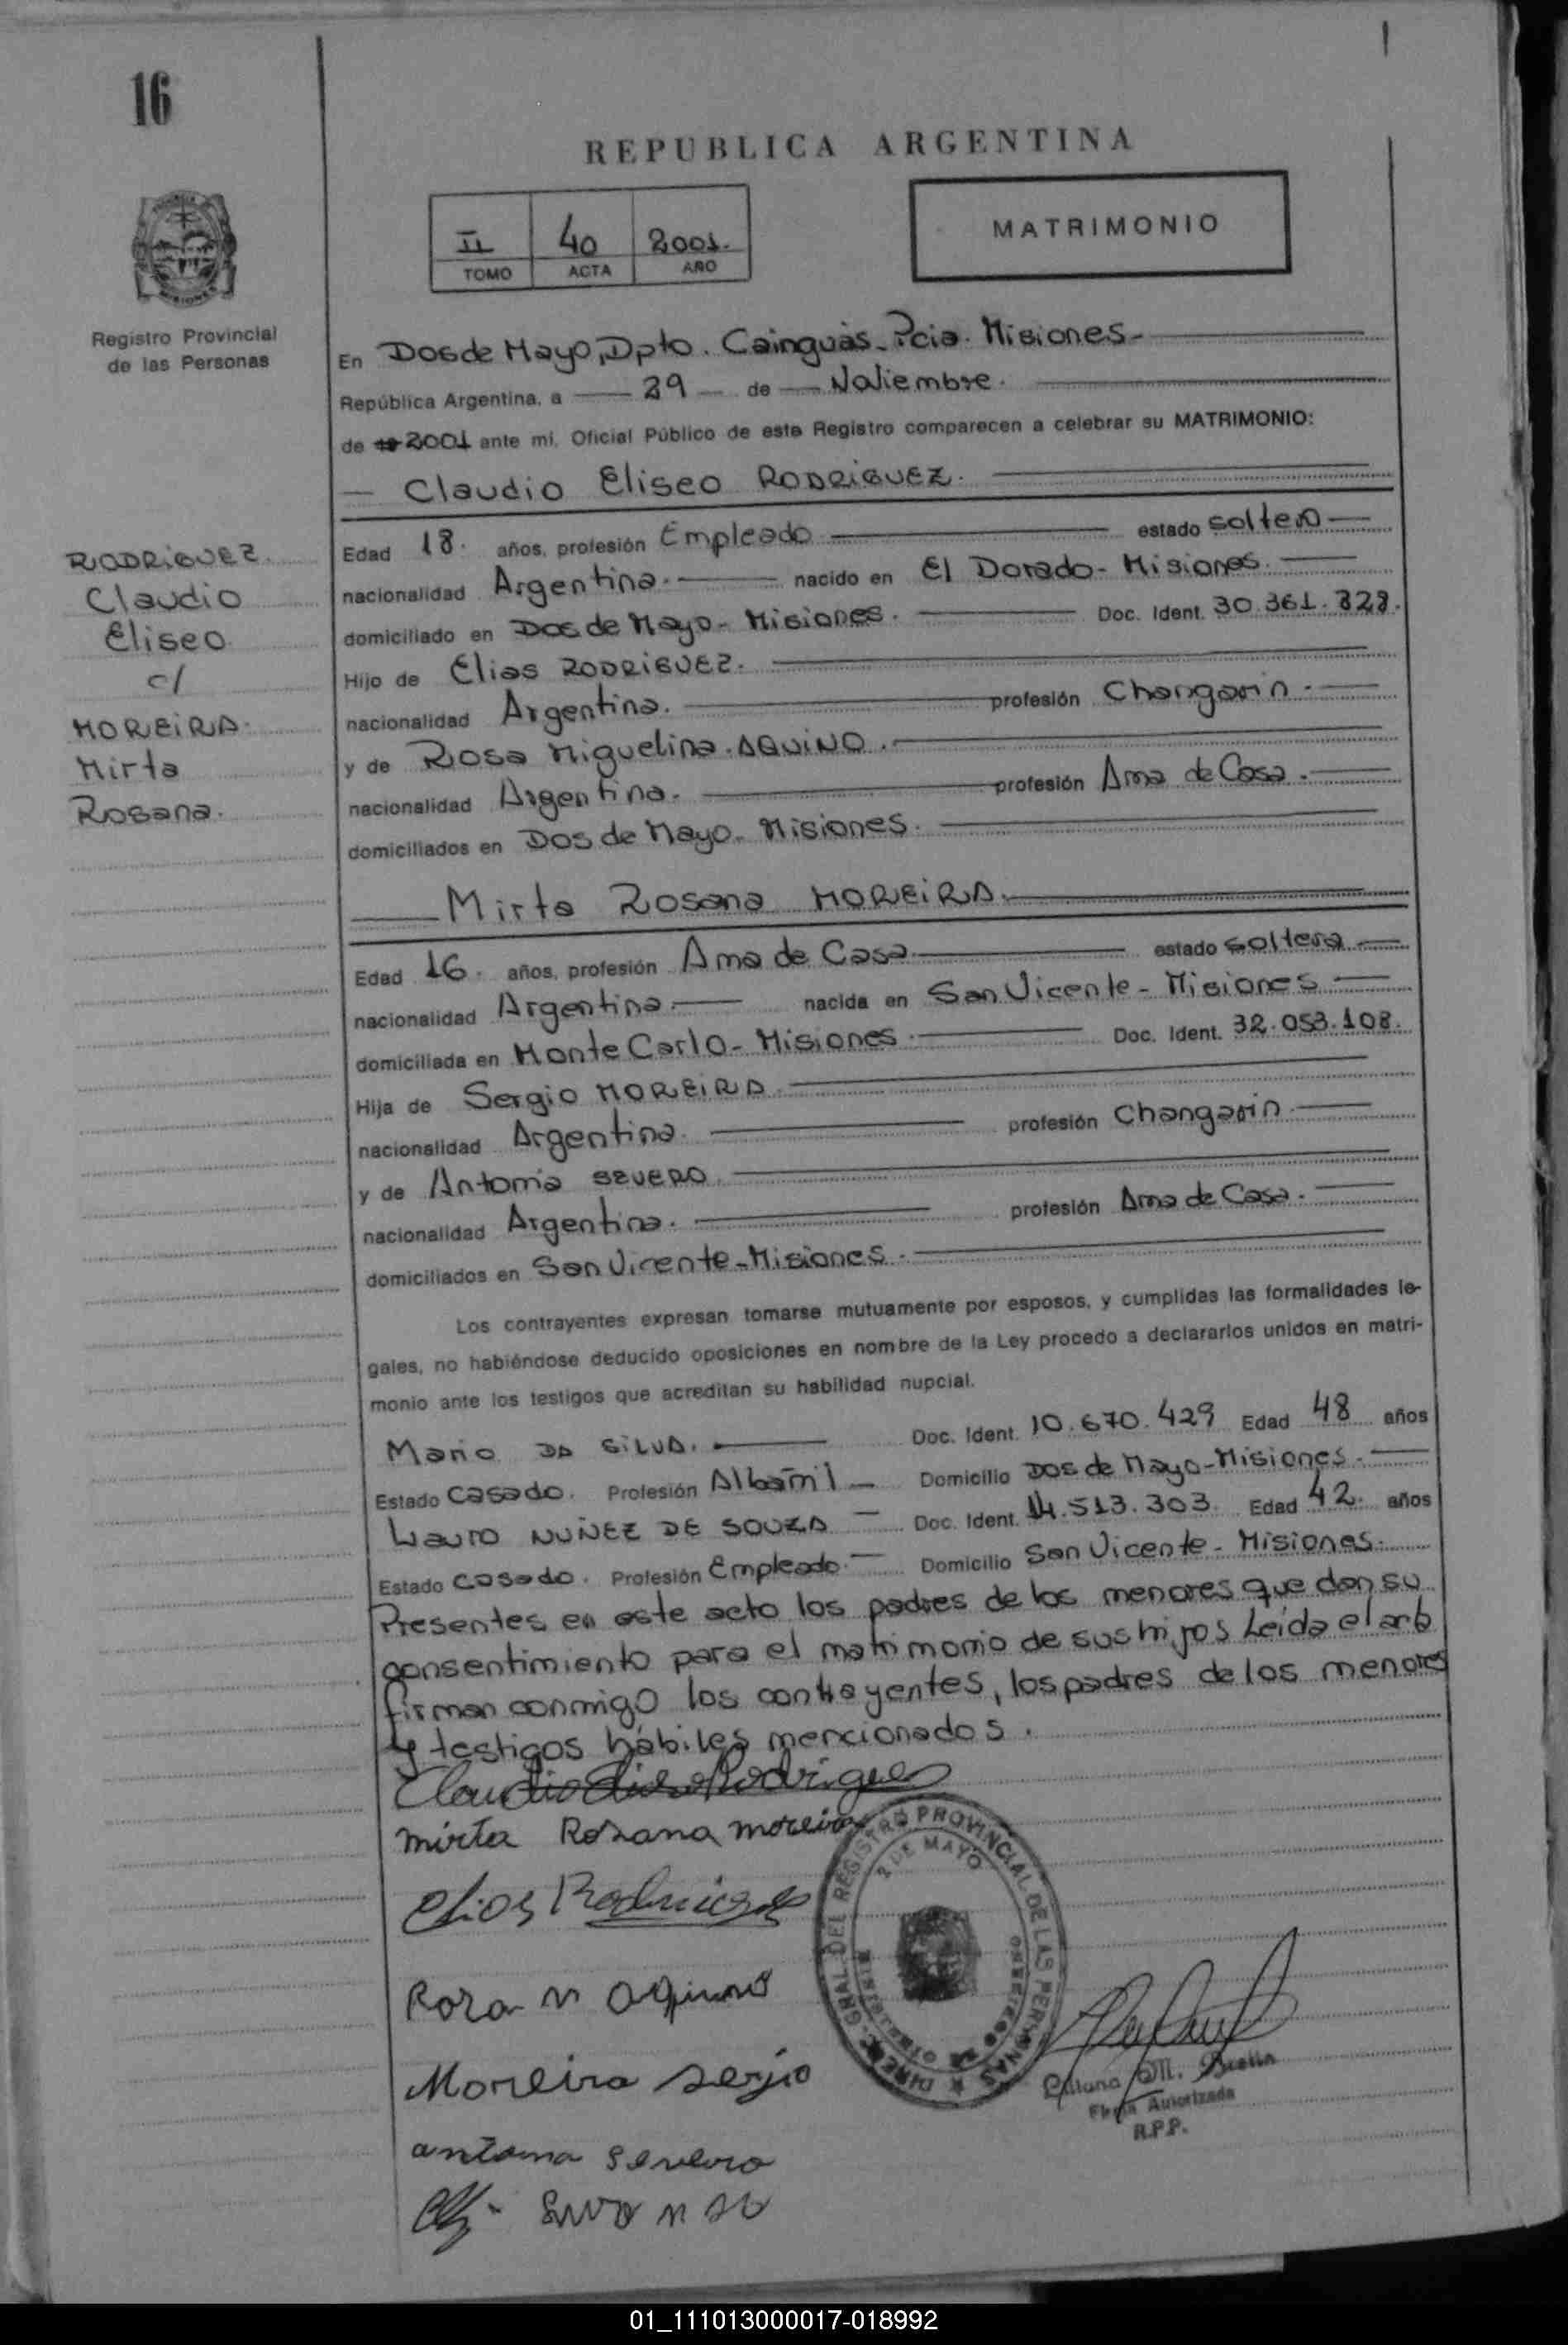 16
REPUBLICA ARGENTINA
II 40 2001.
TOMO ACTA AÑO
MATRIMONIO
Registro Provincial
de las Personas
En Dos de Mayo, Dpto. Cainguás - Pcia. Misiones -
República Argentina, a 29 de Noviembre.
de 2001 ante mi, Oficial Público de este Registro comparecen a celebrar su MATRIMONIO:
Claudio Eliseo RODRIGUEZ.
RODRIGUEZ.
Claudio
Eliseo
c/
MOREIRA.
Mirta
Rosana.
Edad 18. años, profesión Empleado estado soltero
nacionalidad Argentina. nacido en El Dorado - Misiones.
domiciliado en Dos de Mayo - Misiones. Doc. Ident. 30.361.
Hijo de Elias RODRIGUEZ.
nacionalidad Argentina. profesión Changarin.
y de Rosa Miguelina. AQUINO.
nacionalidad Argentina. profesión Ama de Casa.
domiciliados en Dos de Mayo - Misiones.
Mirta Rosana MOREIRA.
Edad 16. años, profesión Ama de Casa. estado soltera
nacionalidad Argentina. nacida en San Vicente - Misiones
domiciliada en Monte Carlo - Misiones. Doc. Ident. 32.053.108.
Hija de Sergio MOREIRA.
nacionalidad Argentina. profesión Changarin.
y de Antonia SEVERO.
nacionalidad Argentina. profesión Ama de Casa.
domiciliados en San Vicente - Misiones.
Los contrayentes expresan tomarse mutuamente por esposos, y cumplidas las formalidades le-
gales, no habiéndose deducido oposiciones en nombre de la Ley procedo a declararlos unidos en matri-
monio ante los testigos que acreditan su habilidad nupcial.
Mario DA SILVA. Doc. Ident. 10.670.429 Edad 48 años
Estado Casado. Profesión Albañil Domicilio Dos de Mayo - Misiones.
Lauro NUÑEZ DE SOUZA Doc. Ident. 14.513.303. Edad 42. años
Estado casado. Profesión Empleado. Domicilio San Vicente - Misiones.
Presentes en este acto los padres de los menores que dan su
consentimiento para el matrimonio de sus hijos Leida el acta
firman conmigo los contrayentes, los padres de los menores
y testigos hábiles mencionados.
Claudio Eliseo Rodriguez
mirta Rosana moreira
Elias Rodriguez
Rosa M Aquino
Moreira serjio
antonia severo
DIREC. GRAL DEL REGISTRO PROVINCIAL DE LAS PERSONAS
2 DE MAYO
M.
Firma Autorizada
R.P.P.
01_111013000017-018992